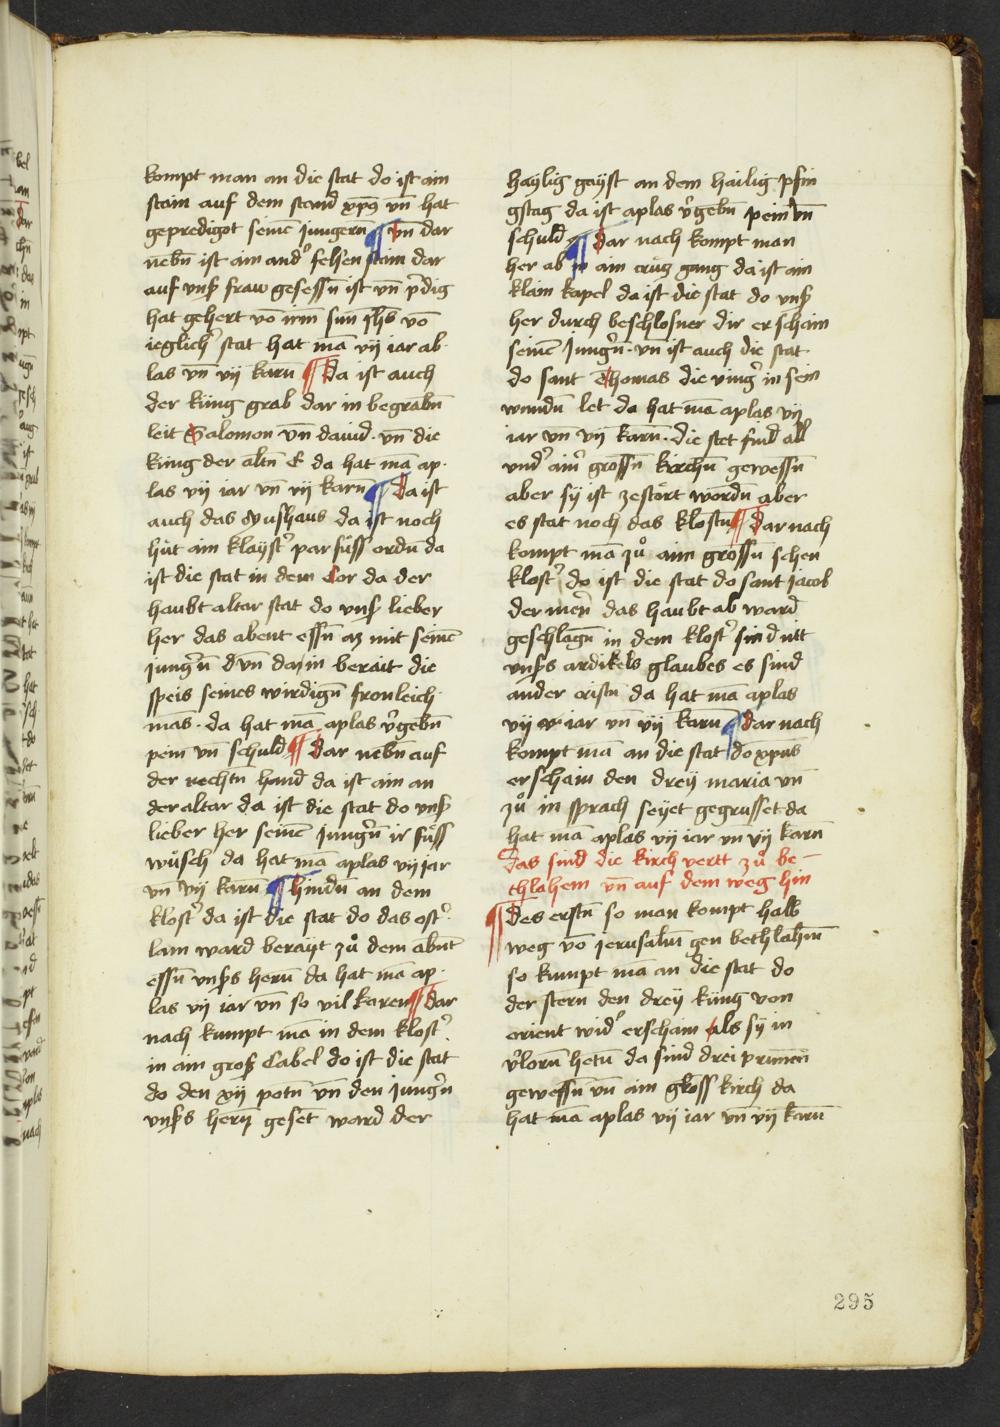 kompt man an die stat do ist ain
stain auf dem stand xp̄s vn̄ hat
geprediget seinē jungern̄ ¶ vn̄ dar
nebn̄ ist ain and' felsen stain dar
auf vnß fraw gesessn̄ ist vn̄ p̄dig
hat gehert vō irm sun jhs vō
ieglich' stat hat mā vij iar ab
las vn̄ vij karn̄ ¶ Da ist auch
der küng grab dar in begrabn̄
leit Salomon vn̄ dauid. vn̄ die
küng der altn̄ E da hat mā ap
las vij iar vn̄ vij karn̄ ¶ Da ist
auch das da ist noch
hüt ain klayst' parfüss ordn̄ da
ist die stat in dem Cor da der
haubt altar stat do vnß lieber
her das abent essn̄ az mit seinē
jung'n̄ vn̄ berait die
speis seines wirdign̄ fronleich
mās. da hat mā aplas v'gebn̄
pein vn̄ schuld ¶ Dar nebn̄ auf
der rechtn̄ hand da ist ain an
der altar da ist die stat do vnß
lieber her seinē jung'n̄ ir füss
wüsch da hat mā aplas vij jar
vn̄ vij karn̄ ¶ hindn̄ an dem
klost' da ist die stat do das ost'
lam ward berayt zů dem abn̄t
essn̄ vnßs hern̄ da hat mā ap
las vij iar vn̄ so vil karen ¶ Dar
nach kumpt mā in dem klost'
in ain groß Cabel do ist die stat
do den xij potn̄ vn̄ den jung'n
vnßs hern̄ geset ward der
haylig gayst an dem hailig pfin
gstag da ist aplas v'gebn̄ pein vn̄
schuld ¶ Dar nach kompt man
her ab in ain crüz gang da ist ain
klain kapel da ist die stat do vnß
her durch beschlosner dir erschain
seinē jung'n̄. vn̄ ist auch die stat
do sant Thomas die ving' in sein
wundn̄ let da hat mā aplas vij
iar vn̄ vij karn̄. die stet sind all
vnd' ain' grossn̄ kirchn̄ gewessn̄
aber sy ist zestört wordn̄ aber
es stat noch das klost' ¶ Dar nach
kompt mā zů aim grossn̄ schen
klost' do ist die stat do sant jacob
der mer' das haubt ab ward
geschlagn̄ in dem klost' sind nit
vnßs ardikels glaubes es sind
ander cristn̄ da hat mā aplas
vij iar vn̄ vij karn̄ ¶ Dar nach
kompt mā an die stat do xpūs
erschain den dreÿ maria vn̄
zů in sprach seÿet gegrusset da
hat mā aplas vij iar vn̄ vij karn̄
Das sind die kirch vertt zů be–
thlahem vn̄ auf dem weg hin
¶ Des erstn̄ so man kompt halb
weg vō jerusalm̄ gen bethlahm̄
so kumpt mā an die stat do
der stern den dreÿ küng von
orient wid' erschain als sÿ in
v'lorn̄ hetn̄ da sind drei prunen
gewessn̄ vn̄ ain gross kirch da
hat mā aplas vij iar vn̄ vij karn̄
295